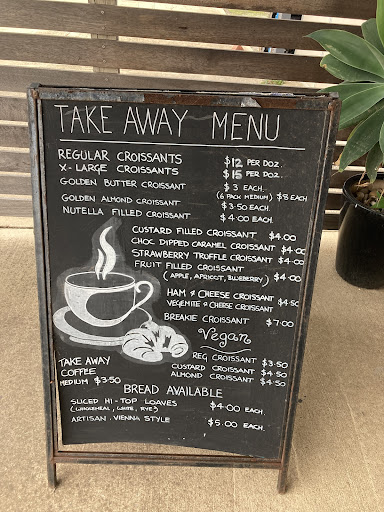 TAKE AWAY MENU
REGULAR CROISSANTS $12 PER DOZ.
X-LARGE CROISSANTS $15 PER DOZ.
GOLDEN BUTTER CROISSANT $3 EACH.
(6 PACK MEDIUM) $8 EACH
GOLDEN ALMOND CROISSANT $3.50 EACH.
NUTELLA FILLED CROISSANT $4.00 EACH.
CUSTARD FILLED CROISSANT $4.00
CHOC DIPPED CARAMEL CROISSANT $4.00
STRAWBERRY TRUFFLE CROISSANT $4.00
FRUIT FILLED CROISSANT
(APPLE, APRICOT, BLUEBERRY) $4.00
HAM & CHEESE CROISSANT $4.50
VEGEMITE & CHEESE CROISSANT
BREAKIE CROISSANT $7.00
Vegan
REG CROISSANT $3.50
CUSTARD CROISSANT $4.50
ALMOND CROISSANT $4.50
TAKE AWAY
COFFEE
MEDIUM $3.50
BREAD AVAILABLE
SLICED HI-TOP LOAVES $4.00 EACH
(WHOLEMEAL, WHITE, RYE)
ARTISAN. VIENNA STYLE $5.00 EACH.